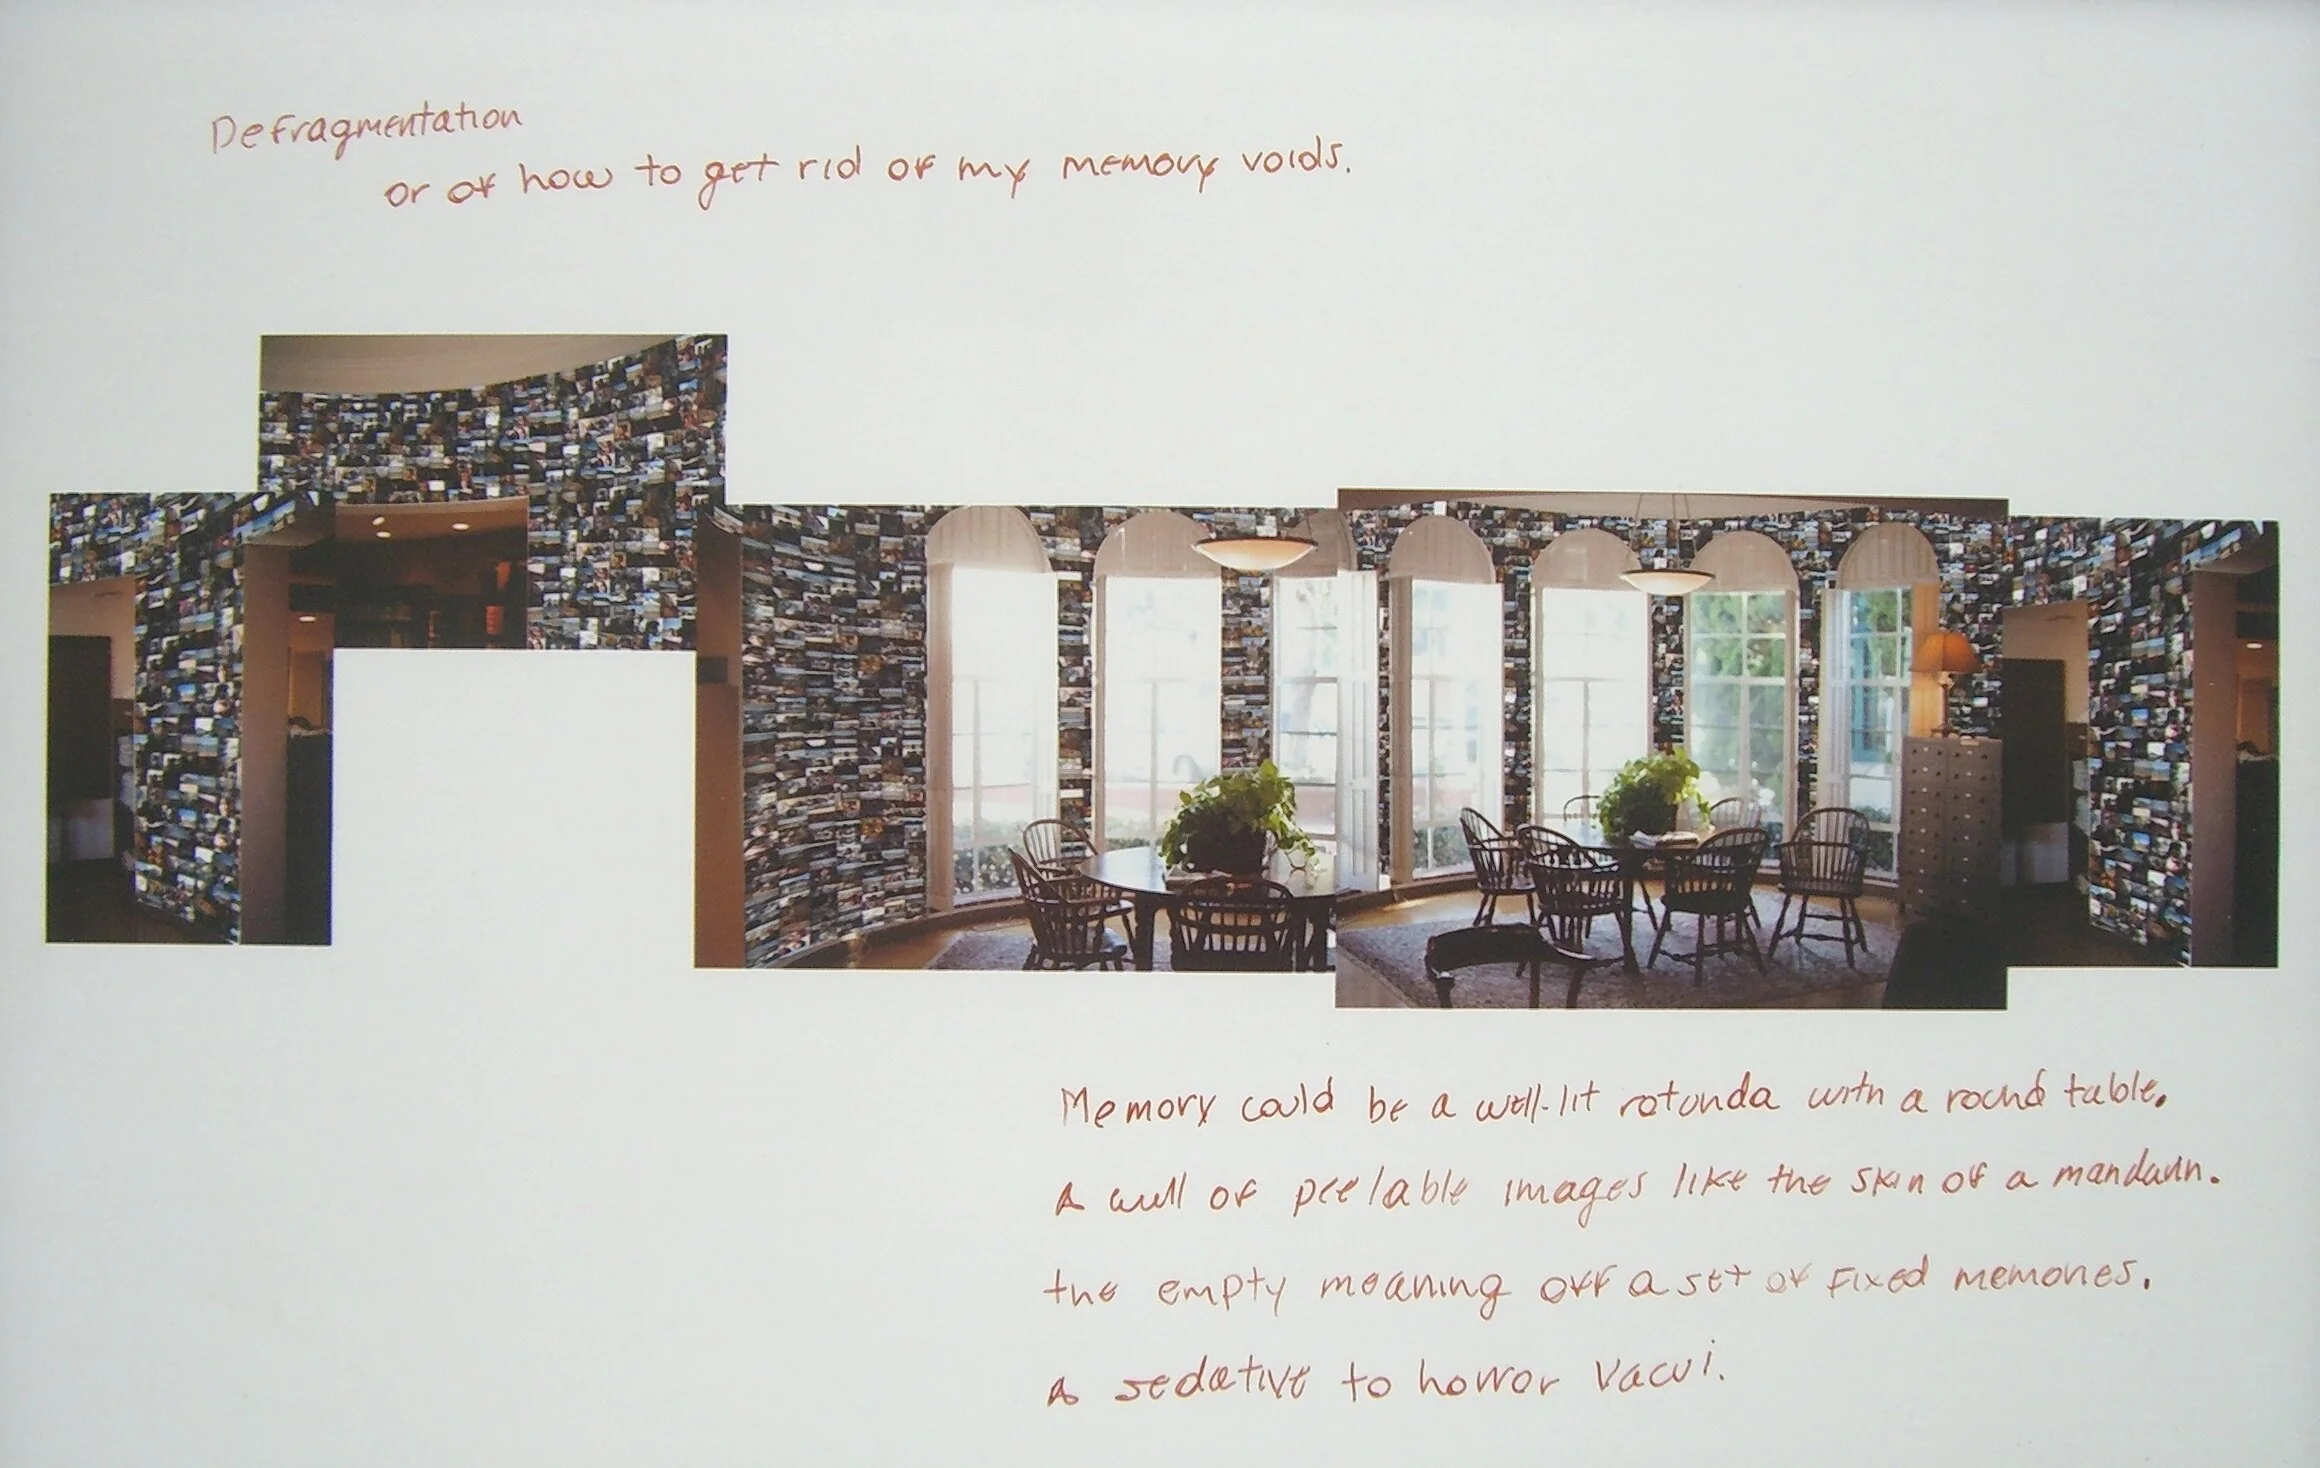 Defragmentation
or of how to get rid of my memory voids.
Memory could be a well-lit rotunda with a round table.
A wall of peelable images like the skin of a mandarin.
the empty meaning off a set of fixed memories.
A sedative to horror vacui.